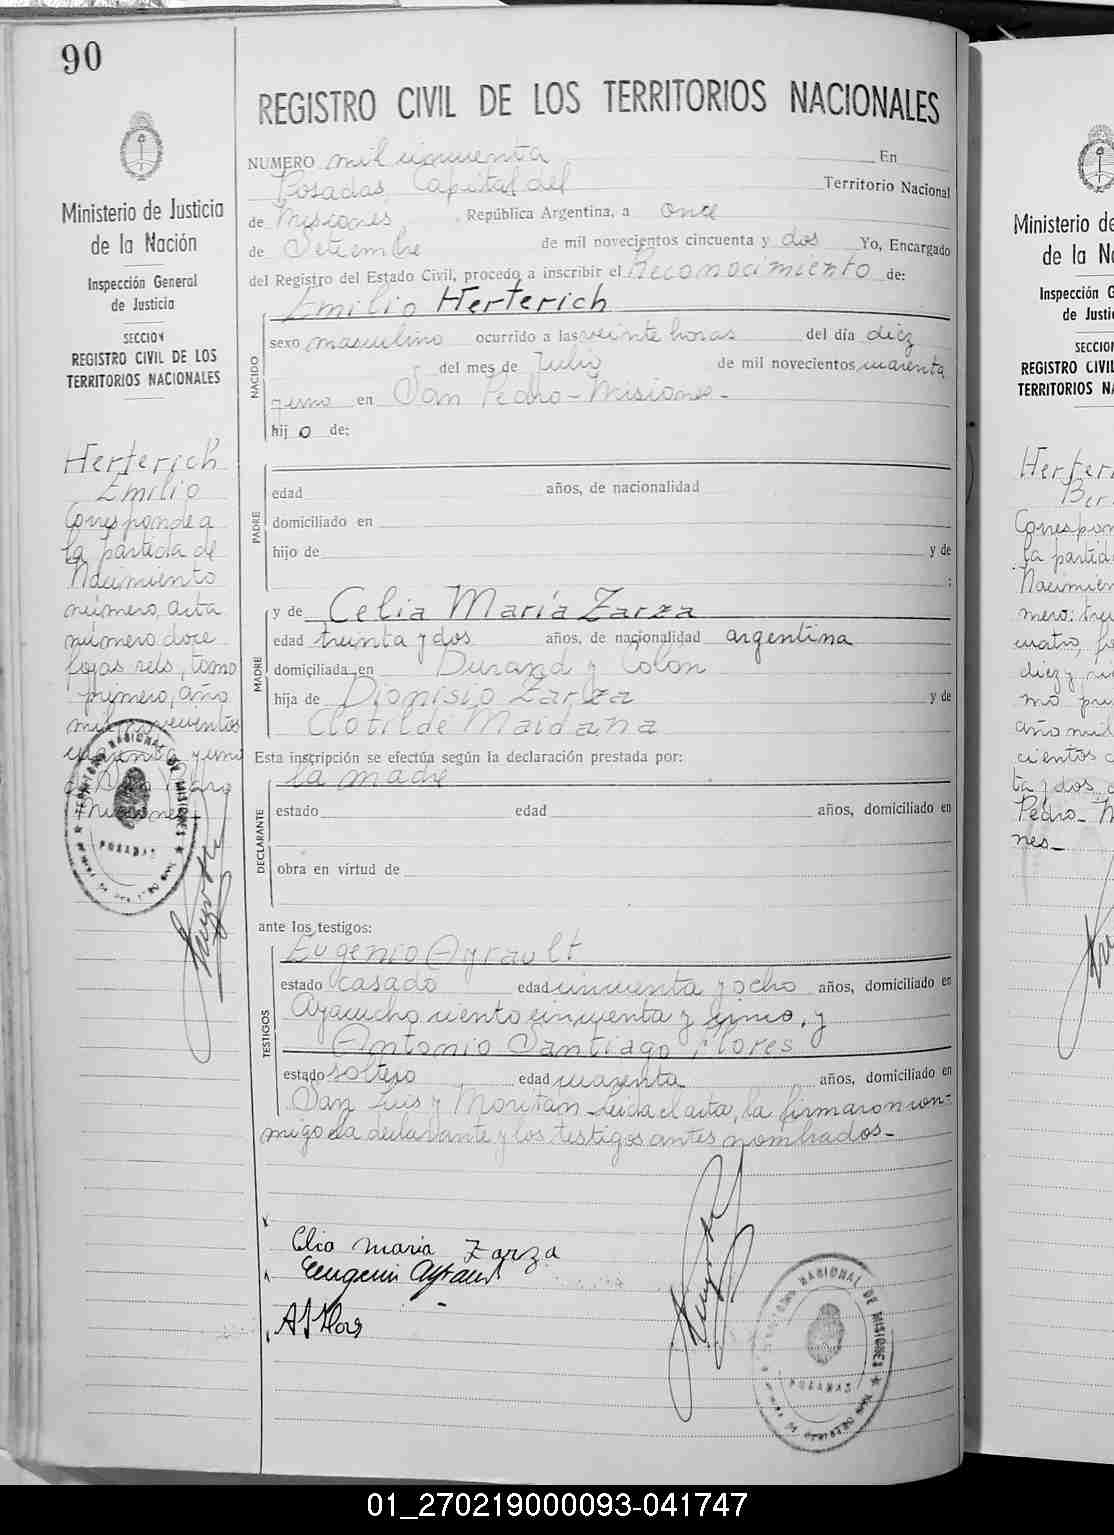 90
REGISTRO CIVIL DE LOS TERRITORIOS NACIONALES
Ministerio de Justicia
de la Nación
Inspección General
de Justicia
SECCION
REGISTRO CIVIL DE LOS
TERRITORIOS NACIONALES
Herterich
Emilio
Corresponde a
la partida de
Nacimiento
número, acta
número doce
fojas seis, tomo
primero, año
mil novecientos
cuarenta y uno
Misiones
TERRITORIO NACIONAL DE MISIONES
POSADAS
NUMERO mil cincuenta En
Posadas, Capital del Territorio Nacional
de Misiones República Argentina, a once
de Setiembre de mil novecientos cincuenta y dos Yo, Encargado
del Registro del Estado Civil, procedo a inscribir el Reconocimiento de:
Emilio Herterich
NACIDO
sexo masculino ocurrido a las veinte horas del día diez
del mes de Julio de mil novecientos cuarenta
y uno en San Pedro - Misiones -
hij o de:
PADRE
edad años, de nacionalidad
domiciliado en
hijo de y de
:
MADRE
y de Celia María Zarza
edad treinta y dos años, de nacionalidad argentina
domiciliada en Durand y Colon
hija de Dionisio Zarza y de
Clotilde Maidana
Esta inscripción se efectúa según la declaración prestada por:
la madre
DECLARANTE
estado edad años, domiciliado en
obra en virtud de
ante los testigos:
TESTIGOS
Eugenio Ayrault
estado casado edad cincuenta y ocho años, domiciliado en
Ayacucho ciento cincuenta y cinco, y
Antonio Santiago Flores
estado soltero edad cuarenta años, domiciliado en
San Luis y Moritan - Leida el acta, la firmaron con-
migo la declarante y los testigos antes nombrados -
Celia maria Zarza
Eugenio Ayrault
A S Flores
TERRITORIO NACIONAL DE MISIONES
POSADAS
Ministerio de
de la Na
Inspección G
de Justi
SECCION
REGISTRO CIVIL
TERRITORIOS NA
Herteri
Ber
Correspon
la partida
Nacimien
mero: tre
cuatro, fo
diez y
mo pri
año mil
cientos c
ta y dos
Pedro - M
nes -
01_270219000093-041747